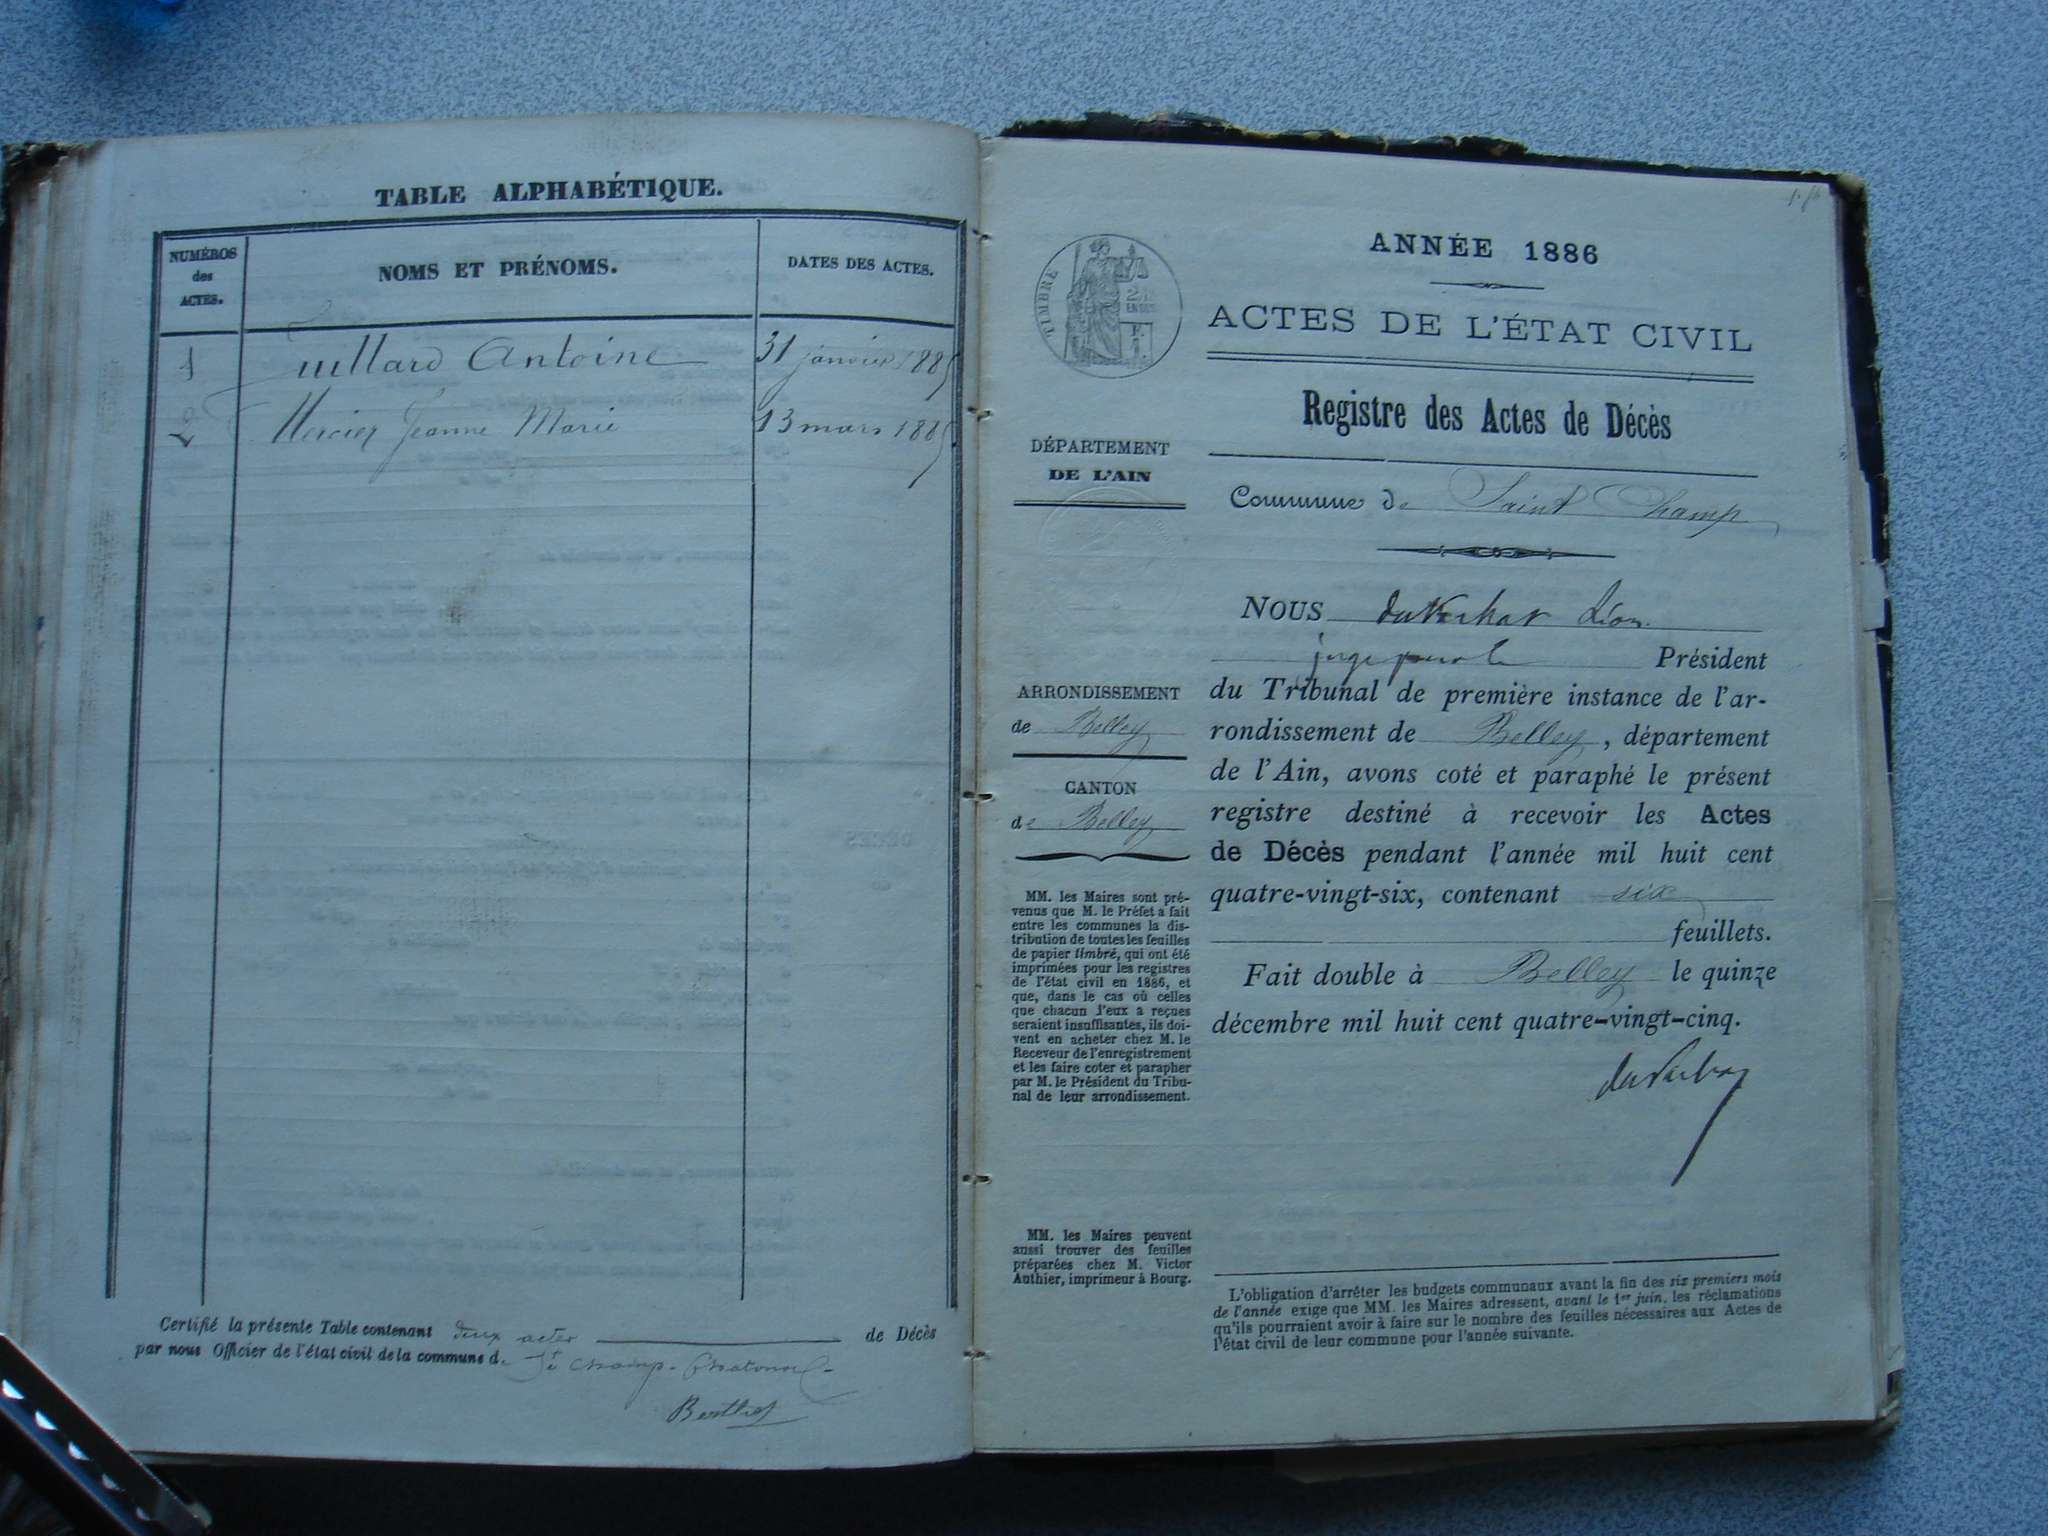 TABLE ALPHABÉTIQUE.
NUMÉROS
des
ACTES.
NOMS ET PRÉNOMS.
DATES DES ACTES.
1 Juillard Antoine 31 janvier 1885
2 Mercier Jeanne Marie 13 mars 1885
Certifié la présente Table contenant deux actes de Décès
par nous Officier de l'état civil de la commune de St Champ-Chatonod
Berthet
ANNÉE 1886
ACTES DE L'ÉTAT CIVIL
Registre des Actes de Décès
Commune de Saint Champ
TIMBRE
DÉPARTEMENT
DE L'AIN
ARRONDISSEMENT
de Belley
CANTON
de Belley
MM. les Maires sont pré-
venus que M. le Préfet a fait
entre les communes la dis-
tribution de toutes les feuilles
de papier timbré, qui ont été
imprimées pour les registres
de l'état civil en 1886, et
que, dans le cas où celles
que chacun d'eux a reçues
seraient insuffisantes, ils doi-
vent en acheter chez M. le
Receveur de l'enregistrement
et les faire coter et parapher
par M. le Président du Tribu-
nal de leur arrondissement.
MM. les Maires peuvent
aussi trouver des feuilles
préparées chez M. Victor
Authier, imprimeur à Bourg.
NOUS Léon
juge Président
du Tribunal de première instance de l'ar-
rondissement de Belley, département
de l'Ain, avons coté et paraphé le présent
registre destiné à recevoir les Actes
de Décès pendant l'année mil huit cent
quatre-vingt-six, contenant six
feuillets.
Fait double à Belley le quinze
décembre mil huit cent quatre-vingt-cinq.
L'obligation d'arrêter les budgets communaux avant la fin des six premiers mois
de l'année exige que MM. les Maires adressent, avant le 1er juin, les réclamations
qu'ils pourraient avoir à faire sur le nombre des feuilles nécessaires aux Actes de
l'état civil de leur commune pour l'année suivante.